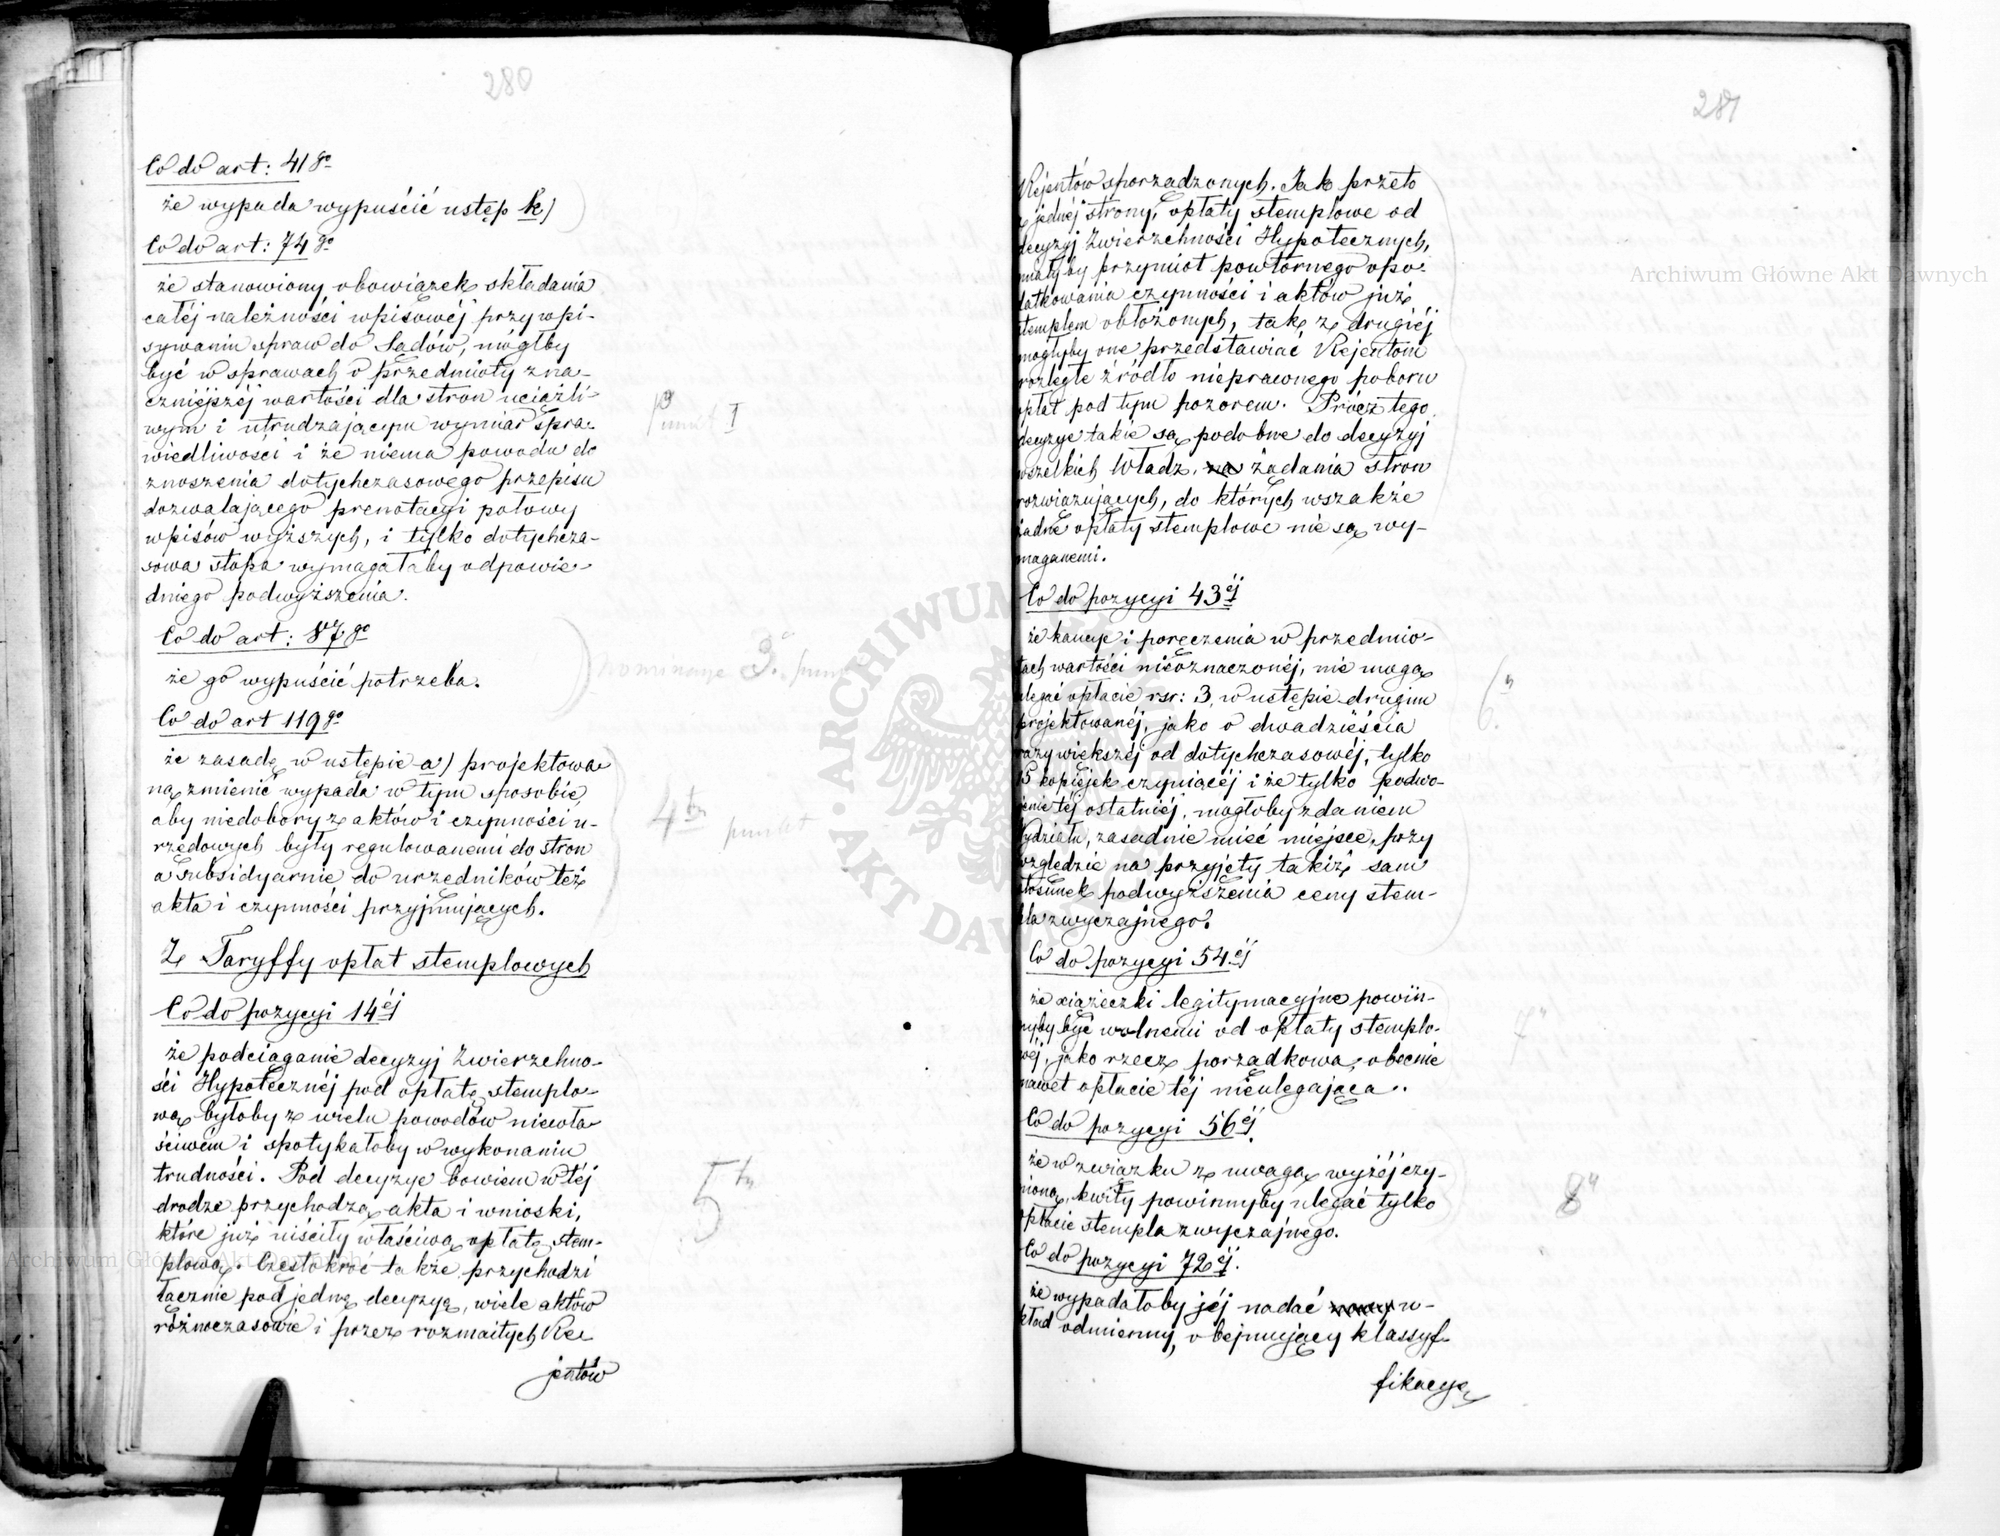 280
Co do art: 41go
że wypada wypuścić ustęp k)
Co do art: 74go
że stanowiony obowiązek składania
całéj należności wpisowéj przy wpi-
sywaniu spraw do Sądów, mógłby
być w sprawach o przedmioty zna-
czniejszéj wartości dla stron uciążli-
wym i utrudzającym wymiar spra-
wiedliwości i że niema powodu do
znoszenia dotychczasowego przepisu
dozwalającego prenotacyi połowy
wpisów wyższych, i tylko dotychcza-
sowa stopa wymagałaby odpowie-
dniego podwyższenia.
punkt I
Co do art: 87go
że go wypuścić potrzeba.
Co do art 119go
że zasadę w ustępie a) projektowa-
ną zmienić wypada w tym sposobie,
aby niedobory z aktów i czynności u-
rzędowych były regulowanemi do stron
a subsidyarnie do urzędników też
akta i czynności przyjmujących.
4ty punkt
Z Taryffy opłat stemplowych
Co do pozycyi 14éj
że podciąganie decyzyj Zwierzchno-
ści Hypotecznéj pod opłatę stemplo-
wą byłoby z wielu powodów niewła-
ściwém i spotykałoby w wykonaniu
trudności. Pod decyzye bowiem w téj
drodze przychodzą akta i wnioski,
które już uiściły właściwą opłatę stem-
plową. Częstokroć także przychodzi
łącznie pod jedną decyzyą, wiele aktów
różnoczasowie i przez rozmaitych Re-
jentów
5ty
281
Rejentów sporządzonych. Jak przeto
z jednéj strony, opłaty stemplowe od
decyzyj Zwierzchności Hypotecznych,
miałyby przymiot powtórnego opo-
datkowania czynności i aktów już
stemplem obłożonych, tak z drugiéj
mogłyby one przedstawiać Rejentom
rozległe źródło nieprawnego poboru
opłat pod tym pozorem. Prócz tego
decyzye takie są podobne do decyzyj
wszelkich Władz, na żądania stron
rozwiązujących, do których wszakże
żadne opłaty stemplowe nie są wy-
maganemi.
Co do pozycyi 43éj
że kaucye i poręczenia w przedmio-
tach wartości nieoznaczonéj, nie mogą
ulegać opłacie rsr: 3, w ustępie drugim
projektowanéj, jako o dwadzieścia
razy większéj od dotychczasowéj, tylko
15 kopiejek czyniącéj i że tylko podwo-
jenie téj ostatniéj, mogłoby zdaniem
Wydziału, zasadnie mieć miejsce, przy
względzie na przyjęty takiż sam
stosunek podwyższenia ceny stem-
pla zwyczajnego.
6"
Co do pozycyi 54éj
że xiążeczki legitymacyjne powin-
nyby być wolnemi od opłaty stemplo-
wéj, jako rzecz porządkowa, obecnie
nawet opłacie téj nieulegająca.
7"
Co do pozycyi 56éj.
że w związku z uwagą wyżéj czy-
nioną, kwity powinnyby ulegać tylko
opłacie stempla zwyczajnego.
8"
Co do pozycyi 72éj.
że wypadałoby jéj nadać u-
kład odmienny, obejmujący klassyf-
fikacyę
Archiwum Główne Akt Dawnych
Archiwum Główne Akt Dawnych
ARCHIWUM
AKT DAWNYCH